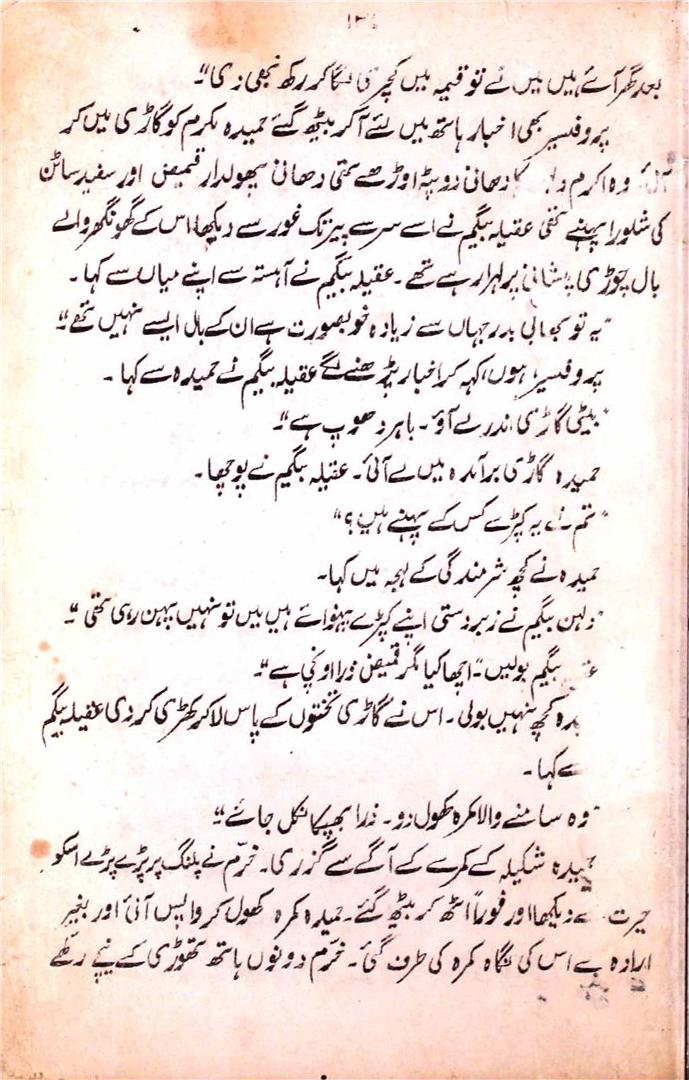 بعد گھر آئے ہیں میں نے تو قیمہ میں کچری لگا کر رکھ بھی دی"۔
پروفیسر بھی اخبار ہاتھ میں لئے آکر بیٹھ گئے حمیدہ مکرم کو گاڑی میں لے کر
آئی وہ اکرم دھانی دوپٹہ اوڑھے تھی دھانی پھولدار قمیض اور سفید ساٹن
کی شلوار پہنے تھی عقیلہ بیگم نے اسے سر سے پیر تک غور سے دیکھا اس کے گھونگھر والے
بال چوڑی پیشانی پر لہرا رہے تھے۔ عقیلہ بیگم نے آہستہ سے اپنے میاں سے کہا۔
"یہ تو بھابی بدر جہاں سے زیادہ خوبصورت ہے ان کے بال ایسے نہیں تھے"۔
پروفیسر، ہوں، کہہ کر اخبار پڑھنے لگے عقیلہ بیگم نے حمیدہ سے کہا۔
"بیٹی گاڑی اندر لے آؤ۔ باہر دھوپ ہے"۔
حمیدہ گاڑی برآمدہ میں لے آئی۔ عقیلہ بیگم نے پوچھا۔
"تم نے یہ کپڑے کس کے پہنے ہیں؟"
حمیدہ نے کچھ شرمندگی کے لہجہ میں کہا۔
"دلہن بیگم نے زبردستی اپنے کپڑے پہنوائے ہیں میں تو نہیں پہن رہی تھی"۔
بیگم بولیں۔ "اچھا کیا مگر قمیض ذرا اونچی ہے"۔
حمیدہ کچھ نہیں بولی۔ اس نے گاڑی تختوں کے پاس لاکر کھڑی کر دی عقیلہ بیگم
نے کہا۔
"وہ سامنے والا کمرہ کھول دو۔ ذرا بھپکا نکل جائے"۔
حمیدہ شکیلہ کے کمرے کے آگے سے گزری۔ خرّم نے پلنگ پر پڑے پڑے اسکو
حیرت سے دیکھا اور فوراً اٹھ کر بیٹھ گئے۔ حمیدہ کمرہ کھول کر واپس آئی اور بغیر
ارادہ ہے اس کی نگاہ کمرہ کی طرف گئی۔ خرّم دونوں ہاتھ تھوڑی کے نیچے رکھے